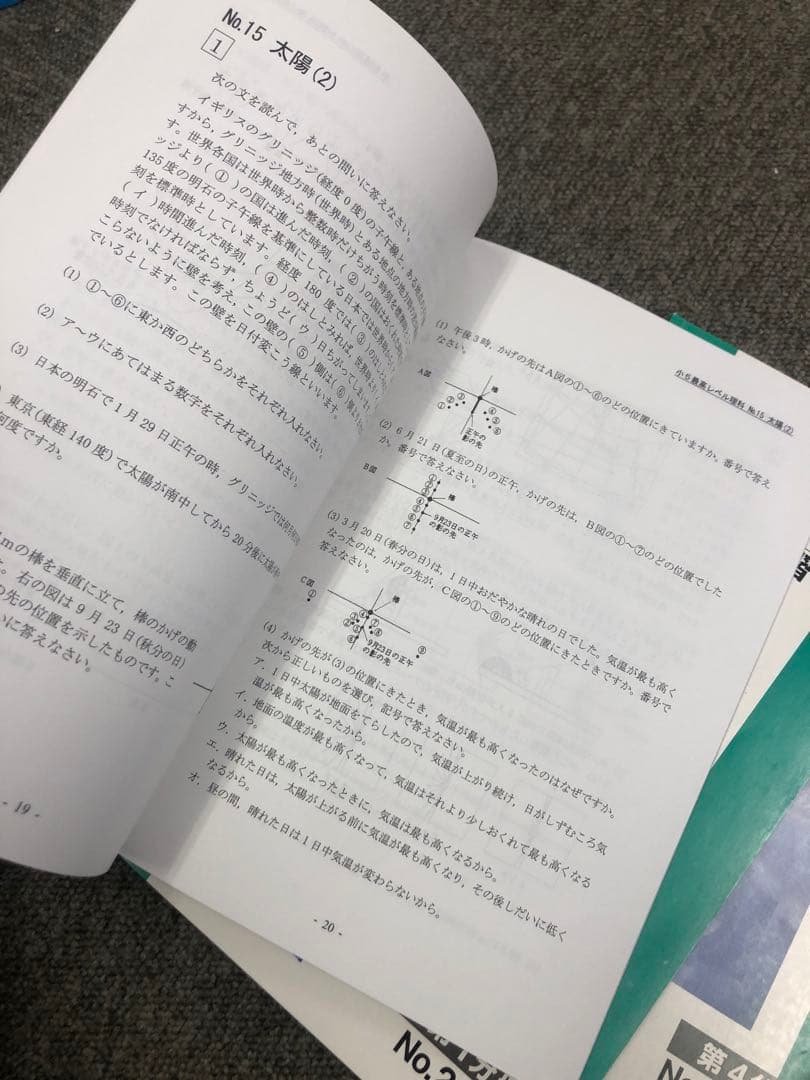 No.15 太陽(2)
1
次の文を読んで，あとの問いに答えなさい。
イギリスのグリニッジ(経度0度)の子午線と，ある地点の
すから，グリニッジ地方時(世界時)とある地点の地方時
す。世界各国は世界時から整数時だけちがう時刻を標準時
ッジより( ① )の国は進んだ時刻，( ② )の国はおくれた
135度の明石の子午線を基準にしている日本では世界時
刻を標準時としています。経度180度では( ③ )のはし
( イ )時間進んだ時刻，( ④ )のはしとみれば，世界時より
時刻でなければならず，ちょうど( ウ )日ちがってしまいます
こらないように壁を考え，この壁の( ⑤ )側は( ⑥ )側
でいるとします。この壁を日付変こう線といいます。
(1) ①〜⑥に東か西のどちらかをそれぞれ入れなさい。
(2) ア〜ウにあてはまる数字をそれぞれ入れなさい。
(3) 日本の明石で1月29日正午の時，グリニッジでは何月何日
東京(東経140度)で太陽が南中してから20分後に太陽が
何度ですか。
1mの棒を垂直に立て，棒のかげの動
右の図は9月23日(秋分の日)
の先の位置を示したものです。こ
いに答えなさい。
- 19 -
小5最高レベル理科 No.15 太陽(2)
(1) 午後3時，かげの先はA図の①〜⑧のどの位置にきていますか。番号で答え
なさい。
A図
棒
正午の
影の先
(2) 6月21日(夏至の日)の正午，かげの先は，B図の①〜⑦のどの位置でした
か。番号で答えなさい。
B図
棒
9月23日の正午
の影の先
(3) 3月20日(春分の日)は，1日中おだやかな晴れの日でした。気温が最も高く
なったのは，かげの先が，C図の①〜⑨のどの位置にきたときですか。番号で
答えなさい。
C図
棒
9月23日の正午
の影の先
(4) かげの先が(3)の位置にきたとき，気温が最も高くなったのはなぜですか。
次から正しいものを選び，記号で答えなさい。
ア．1日中太陽が地面をてらしたので，気温が上がり続け，日がしずむころ気
温が最も高くなったから。
イ．地面の温度が最も高くなって，気温はそれより少しおくれて最も高くなる
から。
ウ．太陽が最も高くなったときに，気温は最も高くなるから。
エ．晴れた日は，太陽が上がる前に気温が最も高くなり，その後しだいに低く
なるから。
オ．昼の間，晴れた日は1日中気温が変わらないから。
- 20 -
No.2
第4